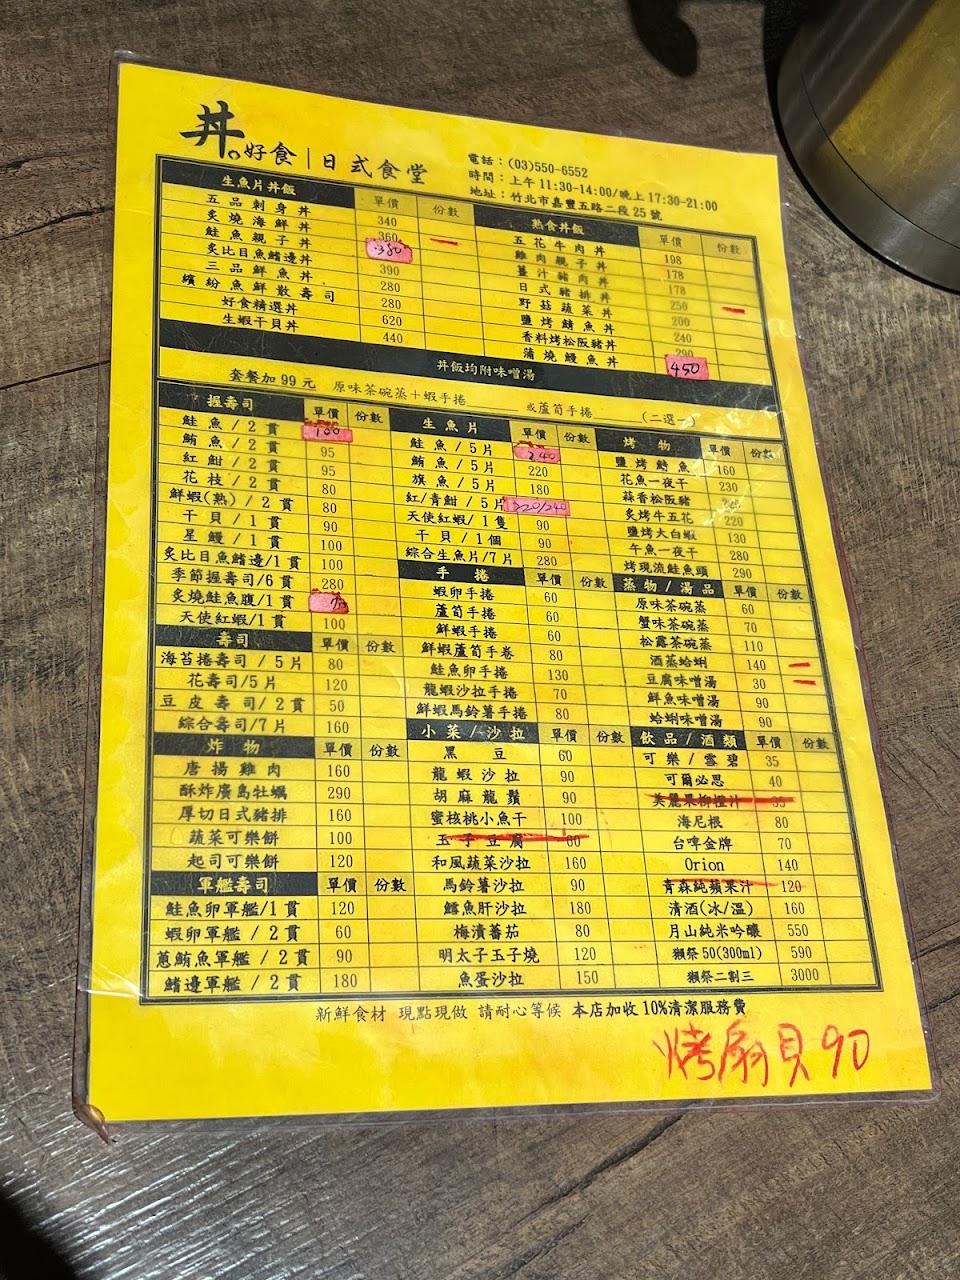 丼。好食|日式食堂
電話:(03)550-6552
時間:上午 11:30-14:00/晚上 17:30-21:00
地址:竹北市嘉豐五路二段 25 號
生魚片丼飯 單價 份數
五品刺身丼 340
炙燒海鮮丼 360
鮭魚親子丼 380
炙比目魚鰭邊丼 390
三品鮮魚丼 280
繽紛魚鮮散壽司 280
好食精選丼 620
生蝦干貝丼 440
熟食丼飯 單價 份數
五花牛肉丼 198
雞肉親子丼 178
薑汁豬肉丼 178
日式豬排丼 250
野菇蔬菜丼 200
鹽烤鯖魚丼 240
香料烤松阪豬丼 290
蒲燒鰻魚丼 450
丼飯均附味噌湯
套餐加 99 元 原味茶碗蒸+蝦手捲______或蘆筍手捲______(二選一)
握壽司 單價 份數
鮭魚/2貫 100
鮪魚/2貫 95
紅魽/2貫 95
花枝/2貫 80
鮮蝦(熟)/2貫 80
干貝/1貫 90
星鰻/1貫 100
炙比目魚鰭邊/1貫 100
季節握壽司/6貫 280
炙燒鮭魚腹/1貫
天使紅蝦/1貫 100
壽司 單價 份數
海苔捲壽司/5片 80
花壽司/5片 120
豆皮壽司/2貫 50
綜合壽司/7片 160
炸物 單價 份數
唐揚雞肉 160
酥炸廣島牡蠣 290
厚切日式豬排 160
蔬菜可樂餅 100
起司可樂餅 120
軍艦壽司 單價 份數
鮭魚卵軍艦/1貫 120
蝦卵軍艦/2貫 60
蔥鮪魚軍艦/2貫 90
鰭邊軍艦/2貫 180
生魚片 單價 份數
鮭魚/5片 240
鮪魚/5片 220
旗魚/5片 180
紅/青魽/5片 320/240
天使紅蝦/1隻 90
干貝/1個 90
綜合生魚片/7片 280
手捲 單價 份數
蝦卵手捲 60
蘆筍手捲 60
鮮蝦手捲 60
鮮蝦蘆筍手卷 80
鮭魚卵手捲 130
龍蝦沙拉手捲 70
鮮蝦馬鈴薯手捲 80
小菜/沙拉 單價 份數
黑豆 60
龍蝦沙拉 90
胡麻龍鬚 90
蜜核桃小魚干 100
玉子豆腐 60
和風蔬菜沙拉 160
馬鈴薯沙拉 90
鱈魚肝沙拉 180
梅漬蕃茄 80
明太子玉子燒 120
魚蛋沙拉 150
烤物 單價 份數
鹽烤鯖魚 160
花魚一夜干 230
蒜香松阪豬 240
炙烤牛五花 220
鹽烤大白蝦 130
午魚一夜干 280
烤現流鮭魚頭 290
蒸物/湯品 單價 份數
原味茶碗蒸 60
蟹味茶碗蒸 70
松露茶碗蒸 110
酒蒸蛤蜊 140
豆腐味噌湯 30
鮮魚味噌湯 90
蛤蜊味噌湯 90
飲品/酒類 單價 份數
可樂/雪碧 35
可爾必思 40
美麗果柳橙汁 35
海尼根 80
台啤金牌 70
Orion 140
青森純蘋果汁 120
清酒(冰/溫) 160
月山純米吟釀 550
獺祭50(300ml) 590
獺祭二割三 3000
新鮮食材 現點現做 請耐心等候 本店加收10%清潔服務費
烤扇貝90